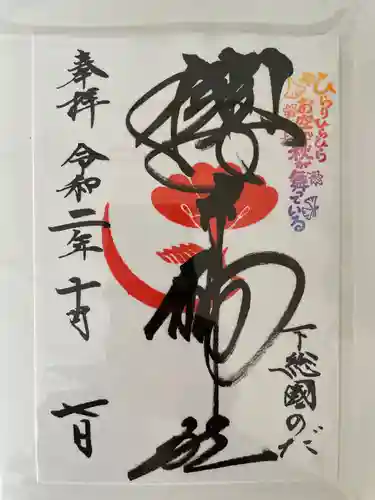 ひらりひらひら
お空で
秋が舞っている
櫻木神社
下総國のだ
奉拝
令和二年十月
七日